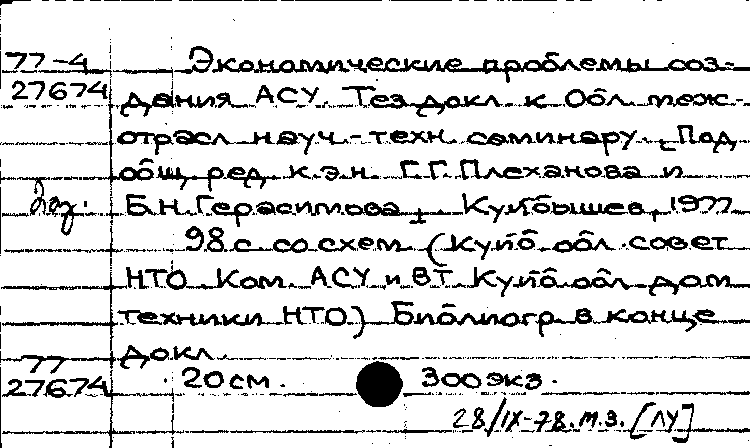 77-4 Экономические проблемы соз-
27674 дания АСУ. Тез. докл. к Обл. меж-
отрасл. науч.-техн. семинару. [Под
общ. ред. к.э.н. Г.Г. Плеханова и
Б.Н. Герасимова]. Куйбышев, 1977
98 с. со схем. (Куйб. обл. совет
НТО. Ком. АСУ и ВТ. Куйб. обл. дом
техники НТО). Библиогр. в конце
77 докл.
27674 20 см. 300 экз.
28/IX-78. м.з. [ЛУ]